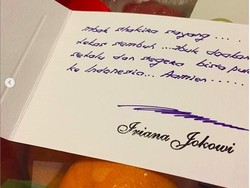 Mbak Shakira sayang ....
lekas sembuh ... Ibuk doakan
selalu dan segera bisa pul
ke Indonesia... Aamiin .....
Iriana Jokowi